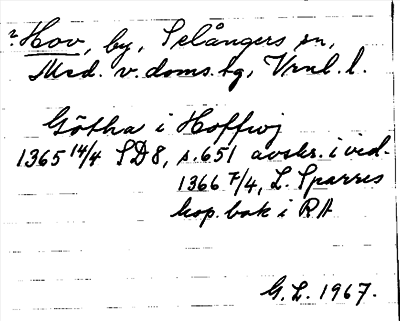 ? Hov, by, Selångers sn,
Med. v. doms. tg, Vrnl. l.
Götha i Hoffwj
1365 14/4 SD 8, s. 651 avskr. i vid.
1366 7/4, L. Sparres
kop. bok i RA
G. L. 1967.